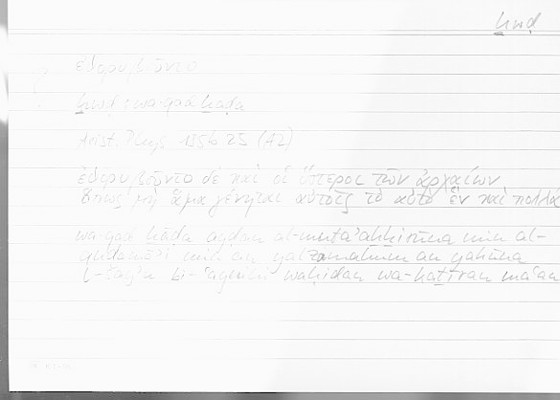 ḫwḍ
ἐθορυβοῦντο
ḫwḍ : wa-qad ḫāḍa
Arist. Phys 185b 25 (A2)
ἐθορυβοῦντο δὲ καὶ οἱ ὕστεροι τῶν ἀρχαίων
ὅπως μὴ ἅμα γένηται αὐτοῖς τὸ αὐτὸ ἓν καὶ πολλά
wa-qad ḫāḍa ayḍan al-mutaʾaḫḫirūna min al-
qudamāʾi min an yalzamahum an yakūna
l-šayʾu wāḥidan wa-kaṯīran maʿan